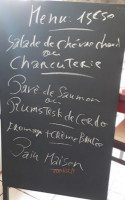 Menu 15€50
Salade de chèvre chaud
ou
Charcuterie
Pavé de Saumon
ou
Plumstesk de Cerdo
Fromage + Crème Brulée
Pain Maison